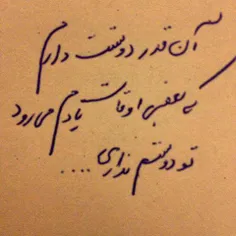 آن قدر دوستت دارم
که بعضی اوقات یادم می رود
تو دوستم نداری.....